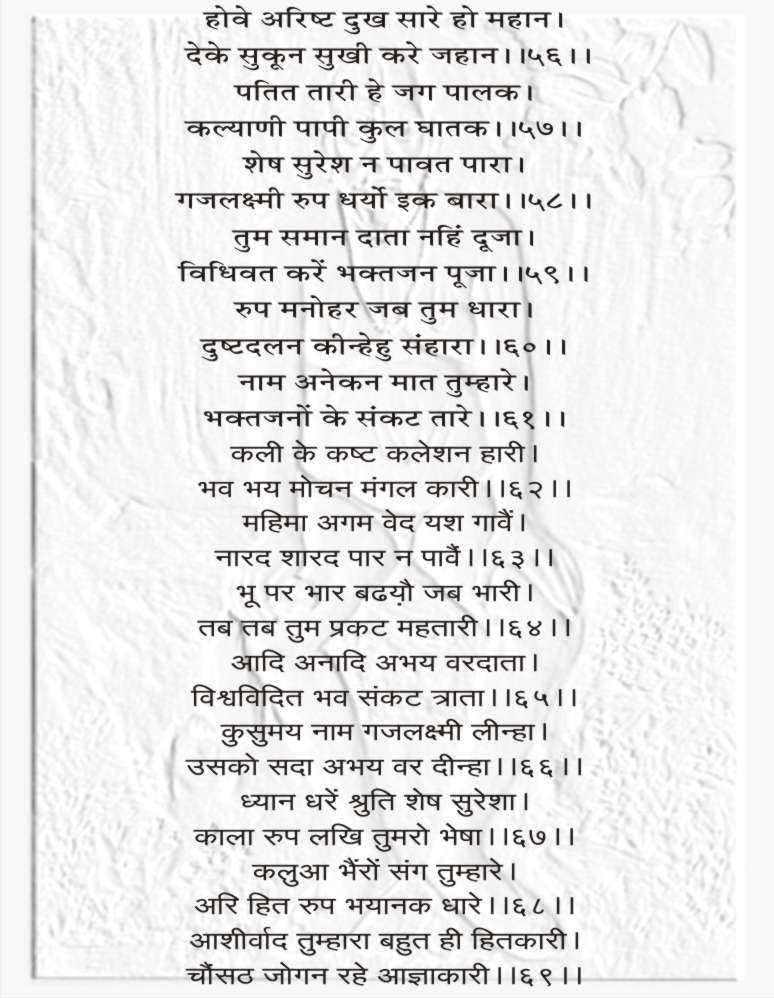 होवे अरिष्ट दुख सारे हो महान।
देके सुकून सुखी करे जहान।।५६।।
पतित तारी हे जग पालक।
कल्याणी पापी कुल घातक।।५७।।
शेष सुरेश न पावत पारा।
गजलक्ष्मी रुप धर्यो इक बारा।।५८।।
तुम समान दाता नहिं दूजा।
विधिवत करें भक्तजन पूजा।।५९।।
रुप मनोहर जब तुम धारा।
दुष्टदलन कीन्हेहु संहारा।।६०।।
नाम अनेकन मात तुम्हारे।
भक्तजनों के संकट तारे।।६१।।
कली के कष्ट कलेशन हारी।
भव भय मोचन मंगल कारी।।६२।।
महिमा अगम वेद यश गावैं।
नारद शारद पार न पावैं।।६३।।
भू पर भार बढय़ौ जब भारी।
तब तब तुम प्रकट महतारी।।६४।।
आदि अनादि अभय वरदाता।
विश्वविदित भव संकट त्राता।।६५।।
कुसुमय नाम गजलक्ष्मी लीन्हा।
उसको सदा अभय वर दीन्हा।।६६।।
ध्यान धरें श्रुति शेष सुरेशा।
काला रुप लखि तुमरो भेषा।।६७।।
कलुआ भैंरों संग तुम्हारे।
अरि हित रुप भयानक धारे।।६८।।
आशीर्वाद तुम्हारा बहुत ही हितकारी।
चौंसठ जोगन रहे आज्ञाकारी।।६९।।